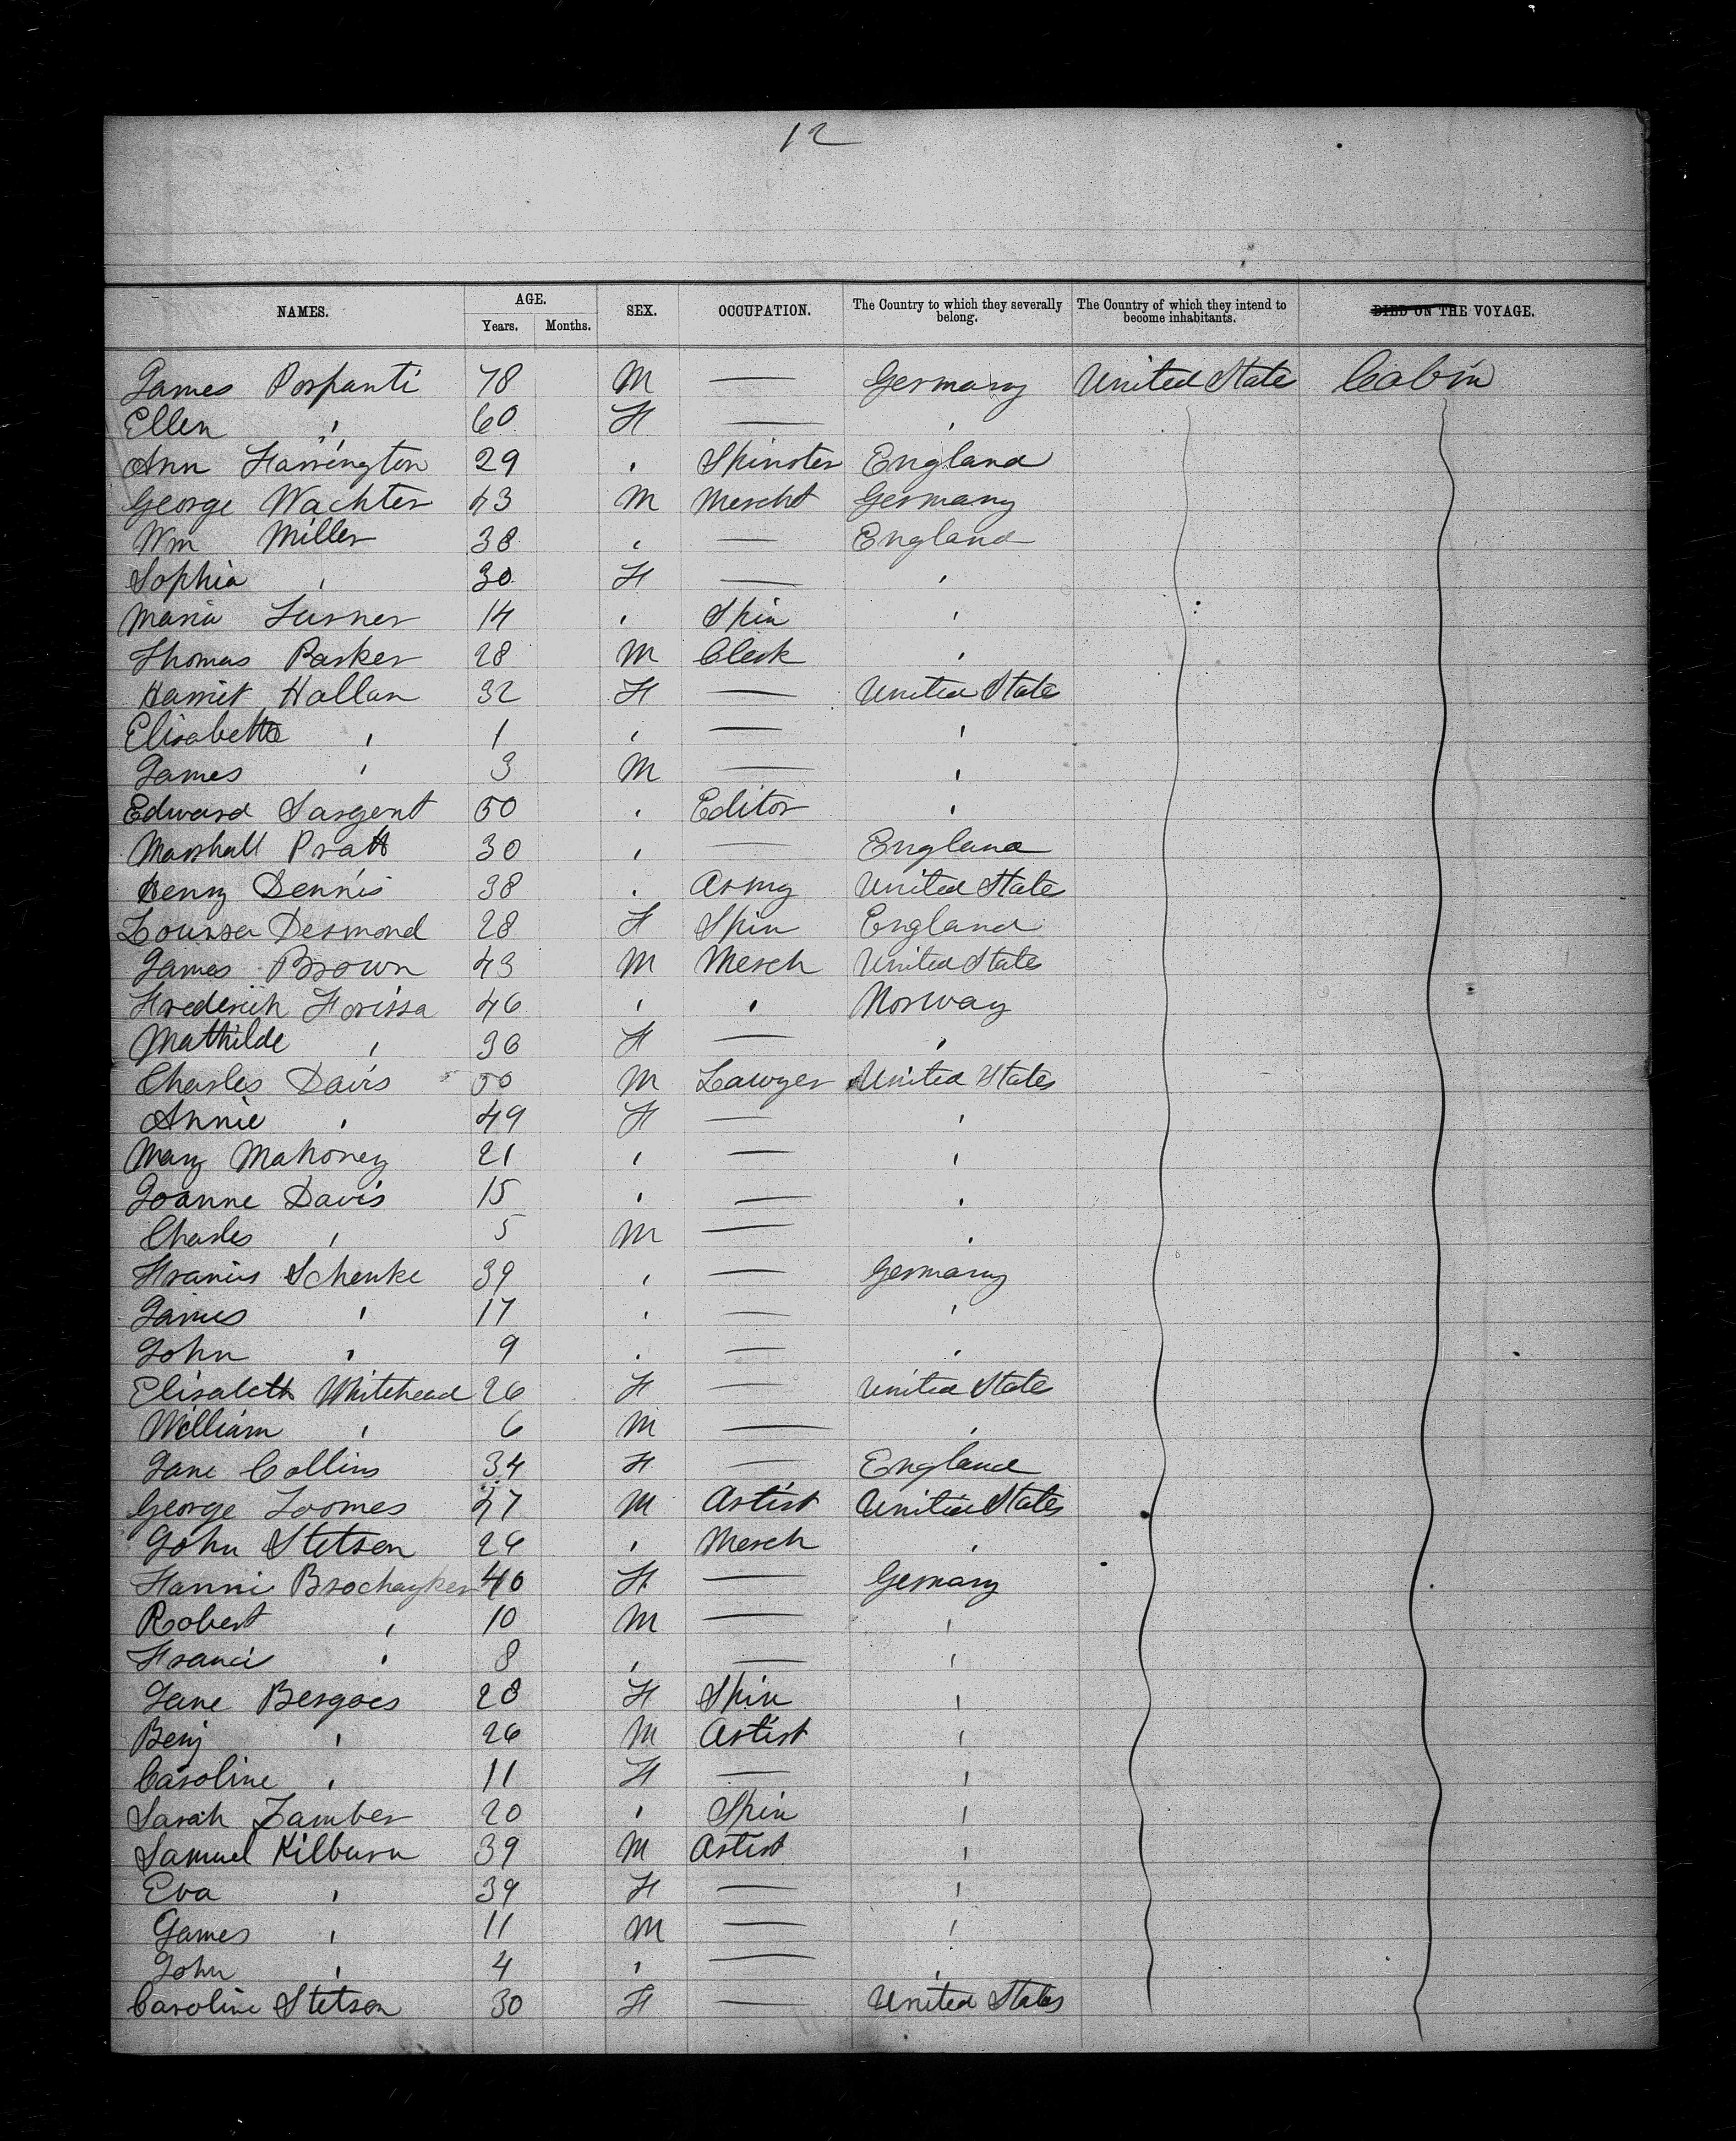 12
NAMES. AGE. Years. Months. SEX. OCCUPATION. The Country to which they severally belong. The Country of which they intend to become inhabitants. DIED ON THE VOYAGE.
James 78 M — Germany United State Cabin
Ellen " 60 F — "
Ann Harrington 29 " Spinster England
George Wachter 43 M Mercht Germany
Wm Miller 38 " — England
Sophia " 30 F — "
Maria Turner 14 " Spin "
Thomas Parker 28 M Clerk "
Harriet Hallan 32 F — United State
Elisabeth " 1 " — "
James " 3 M — "
Edward Sargent 50 " Editor "
Marshall Pratt 30 " — England
Henry Dennis 38 " Army United State
Louisa Desmond 28 F Spin England
James Brown 43 M Merch United States
Frederick Forissa 46 " " Norway
Mathilde " 36 F — "
Charles Davis 50 M Lawyer United States
Annie " 49 F — "
Mary Mahoney 21 " — "
Joanne Davis 15 " — "
Charles " 5 M — "
Francis Schenke 39 " — Germany
James " 17 " — "
John " 9 " — "
Elisabeth Whitehead 26 F — United State
William " 6 M — "
Jane Collins 34 F — England
George Loomes 47 M Artist United States
John Stetson 26 " Merch "
Fanni 40 F — Germany
Robert " 10 M — "
Franci " 8 " — "
Jane Bergoes 28 F Spin "
Benj " 26 M Artist "
Caroline " 11 F — "
Sarah Zamber 20 " Spin "
Samuel Kilburn 39 M Artist "
Eva " 39 F — "
James " 11 M — "
John " 4 " — "
Caroline Stetson 30 F — United States